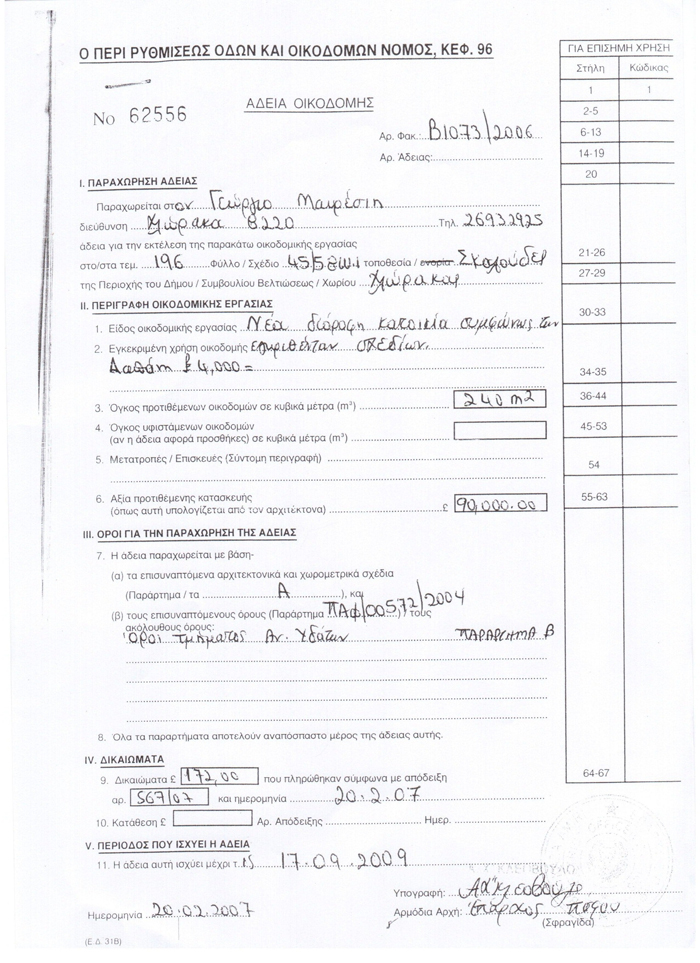 Ο ΠΕΡΙ ΡΥΘΜΙΣΕΩΣ ΟΔΩΝ ΚΑΙ ΟΙΚΟΔΟΜΩΝ ΝΟΜΟΣ, ΚΕΦ. 96
ΓΙΑ ΕΠΙΣΗΜΗ ΧΡΗΣΗ
Στήλη Κώδικας
1 1
Νο 62556
ΑΔΕΙΑ ΟΙΚΟΔΟΜΗΣ
2-5
Αρ. Φακ.: Β1073/2006
6-13
Αρ. Άδειας:
14-19
20
Ι. ΠΑΡΑΧΩΡΗΣΗ ΑΔΕΙΑΣ
Παραχωρείται στον Γεώργιο
διεύθυνση Χλώρακα 8220 Τηλ. 26932925
άδεια για την εκτέλεση της παρακάτω οικοδομικής εργασίας
στο/στα τεμ. 196 Φύλλο / Σχέδιο 45/58W.1 τοποθεσία / ενορία
21-26
της Περιοχής του Δήμου / Συμβουλίου Βελτιώσεως / Χωρίου Χλώρακας
27-29
ΙΙ. ΠΕΡΙΓΡΑΦΗ ΟΙΚΟΔΟΜΙΚΗΣ ΕΡΓΑΣΙΑΣ
30-33
1. Είδος οικοδομικής εργασίας Νέα διώροφη κατοικία συμφώνως των
2. Εγκεκριμένη χρήση οικοδομής εγκριθέντων σχεδίων.
Δαπάνη £4,000=
34-35
3. Όγκος προτιθέμενων οικοδομών σε κυβικά μέτρα (m³) 240 m2
36-44
4. Όγκος υφιστάμενων οικοδομών
(αν η άδεια αφορά προσθήκες) σε κυβικά μέτρα (m³)
45-53
5. Μετατροπές / Επισκευές (Σύντομη περιγραφή)
54
6. Αξία προτιθέμενης κατασκευής
(όπως αυτή υπολογίζεται από τον αρχιτέκτονα) £ 90,000.00
55-63
ΙΙΙ. ΟΡΟΙ ΓΙΑ ΤΗΝ ΠΑΡΑΧΩΡΗΣΗ ΤΗΣ ΑΔΕΙΑΣ
7. Η άδεια παραχωρείται με βάση-
(α) τα επισυναπτόμενα αρχιτεκτονικά και χωρομετρικά σχέδια
(Παράρτημα / τα Α ), και
(β) τους επισυναπτόμενους όρους (Παράρτημα ΠΑΦ/00572/2004 ) / τους
ακόλουθους όρους:
Όροι τμήματος Αν. Υδάτων ΠΑΡΑΡΤΗΜΑ Β
8. Όλα τα παραρτήματα αποτελούν αναπόσπαστο μέρος της άδειας αυτής.
IV. ΔΙΚΑΙΩΜΑΤΑ
64-67
9. Δικαιώματα £ 172,00 που πληρώθηκαν σύμφωνα με απόδειξη
αρ. 567/07 και ημερομηνία 20.2.07
10. Κατάθεση £ Αρ. Απόδειξης Ημερ.
V. ΠΕΡΙΟΔΟΣ ΠΟΥ ΙΣΧΥΕΙ Η ΑΔΕΙΑ
11. Η άδεια αυτή ισχύει μέχρι τις 17.09.2009
Υπογραφή:
Ημερομηνία 20.02.2007
Αρμόδια Αρχή: Έπαρχος Πάφου
(Σφραγίδα)
(Ε.Δ. 31Β)